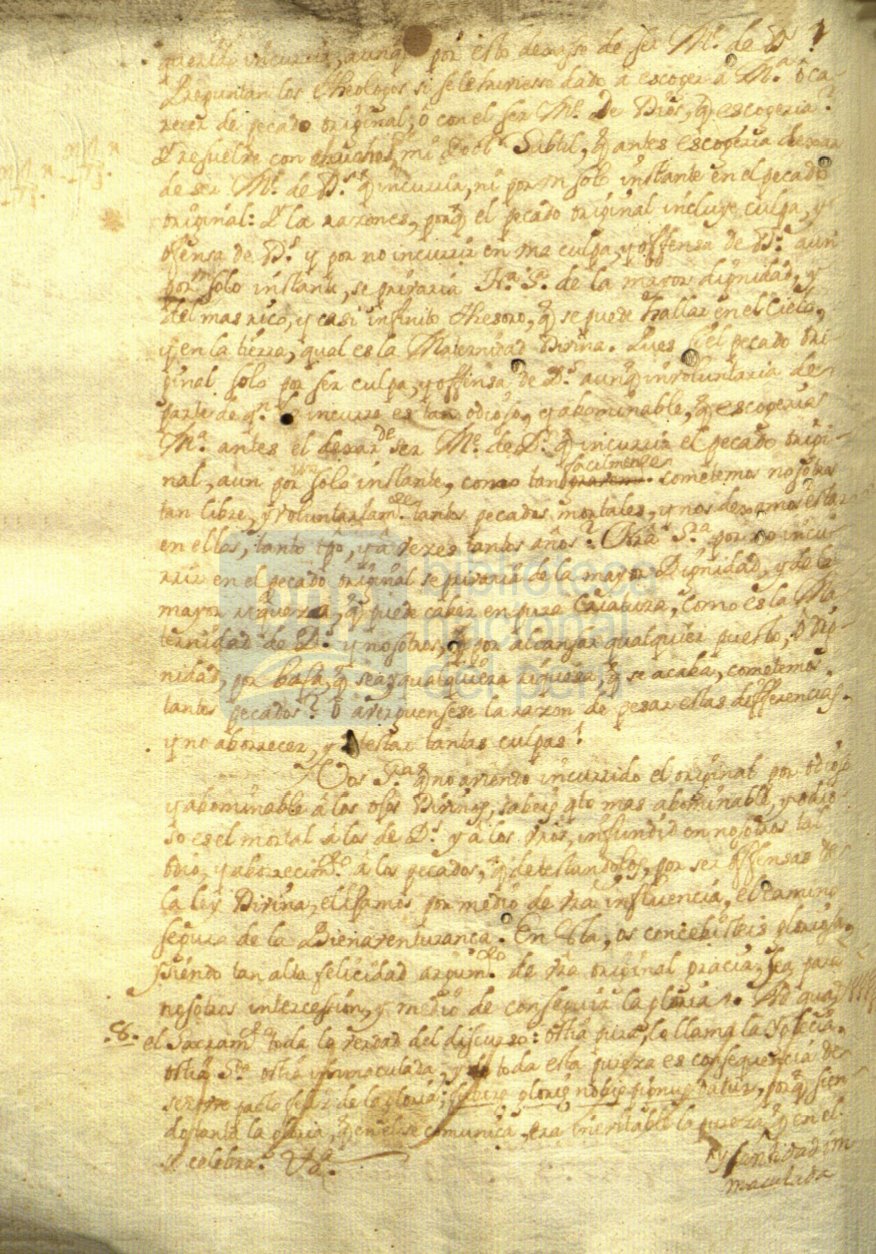 querido incurrir, aunq̃ por esto dexasse de ser Mᵉ. de Dˢ.
Preguntan los Theologos si se le huviesse dado a escoger a Mᵃ. ò ca-
recer de pecado original, ò con el ser Mᵉ. de Dios, q̃ escogeria?
Y resuelve con muchos mi Doctʳ. Subtil, q̃ antes escogeria dexar
de ser Mᵉ. de Dˢ. q̃ incurrir, ni por un solo instante en el pecado
original: Y la razon es, porq̃ el pecado original incluye culpa, y
ofensa de Dˢ. y por no incurrir en una culpa, y offensa de Dˢ. aun
por un solo instante, se privaria Nᵃ. Sᵃ. de la mayor dignidad, y
del mas rico, y casi infinito thesoro, q̃ se puede hallar en el Cielo,
y en la tierra, qual es la Maternidad Divina. Pues si el pecado ori-
ginal solo por ser culpa, y offensa de Dˢ. aunq̃ involuntaria de
parte de qⁿ. le incurre es tan odioso, y abominable, q̃ escogeria
Mᵃ. antes el dexar de ser Mᵉ. de Dˢ. q̃ incurrir el pecado origi-
nal, aun por un solo instante, como tan facilmente cometemos nosotros
tan libre, y voluntariamᵗᵉ. tantos pecados mortales, y nos dexamos estar
en ellos, tanto tpõ, y a vezes tantos años? Nrã. Sʳᵃ. por no incur-
rir en el pecado original se privaria de la mayor Dignidad, y de la
mayor riqueza, q̃ puede caber en pura Criatura, como es la Ma-
ternidad de Dˢ. y nosotros, q̃ por alcansar qualquier puesto, ò Dig-
nidad, por baja q̃ sea, y qualquiera riqueza, q̃ se acaba, cometemos
tantos pecados? O averguensese la razon de pesar estas differencias,
y no aborrecer, y detestar tantas culpas!
Vos Sʳᵃ. q̃ no aviendo incurrido el original por odioso
y abominable à los ojos Divinos, sabeis qto mas abominable, y odio-
so es el mortal à los de Dˢ. y à los vros, infundid en nosotros tal
odio, y aborrecimᵗᵒ. à los pecados, q̃ detestandolos, por ser offensas de
la ley Divina, elijamos por medio de vra influencia, el camino
seguro de la Bienaventuranca. En ella, os concebisteis gloriosa,
siendo tan alta felicidad argumᵗᵒ. de vra original gracia, sea para
nosotros intercession, y medio de conseguir la gloria. Ad quam
.S. el Sacramᵗᵒ. toda la verdad del discurso: ostia pura, le llama la Yglecia,
ostia Sᵗᵃ. ostia inmaculada, y toda esta pureza es consequencia de
ser pacto de la gloria; futuræ gloriæ nobis pignus datur, porq̃ sien-
do tanta la gloria, q̃ en el se comunica, era inevitable la pureza q̃ en el
se celebra. Vt sᵃ.
y santidad im
maculada